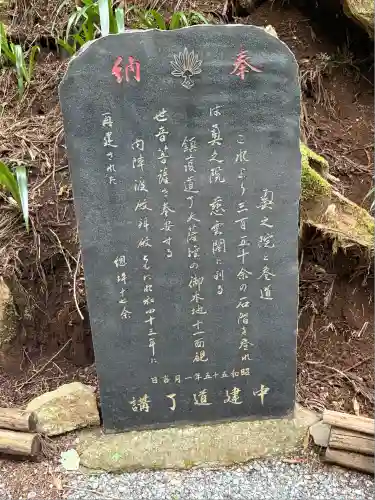 奉納
奥之院参道
これより三百五十余の石階を登れ
ば奥之院 慈雲閣に到る
鎮護道了大薩埵の御本地十一面観
世音菩薩を奉安する
内陣渡殿拝殿ともに昭和四十三年に
再建された
昭和五十五年一月吉日
中建道了講